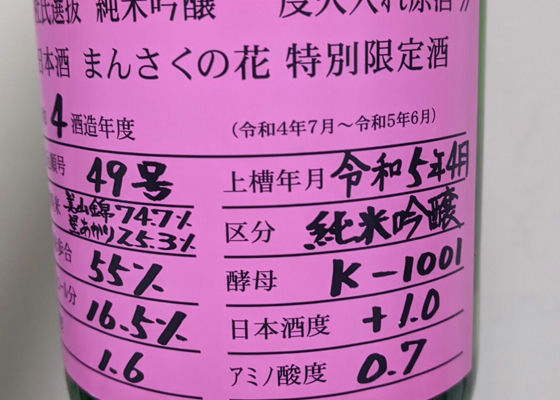 杜氏選抜 純米吟醸 一度火入れ原酒
日本酒 まんさくの花 特別限定酒
4酒造年度 (令和4年7月～令和5年6月)
順号 49号 上槽年月 令和5年4月
米 美山錦74.7% 星あかり25.3% 区分 純米吟醸
歩合 55% 酵母 K-1001
ル分 16.5% 日本酒度 +1.0
1.6 アミノ酸度 0.7